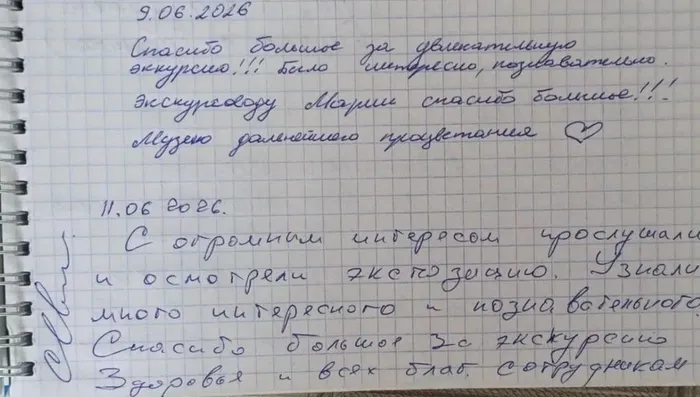 9.06.2026
Спасибо большое за увлекательную
эккурсию!!! Было интересно, познавательно.
Экскурсоводу Марии спасибо большое!!!
Музею дальнейшего процветания ♡
11.06 2026.
С огромным интересом прослушали
и осмотрели экспозицию. Узнали
много интересного и познавательного.
Спасибо большое за экскурсию
Здоровья и всех благ сотрудникам